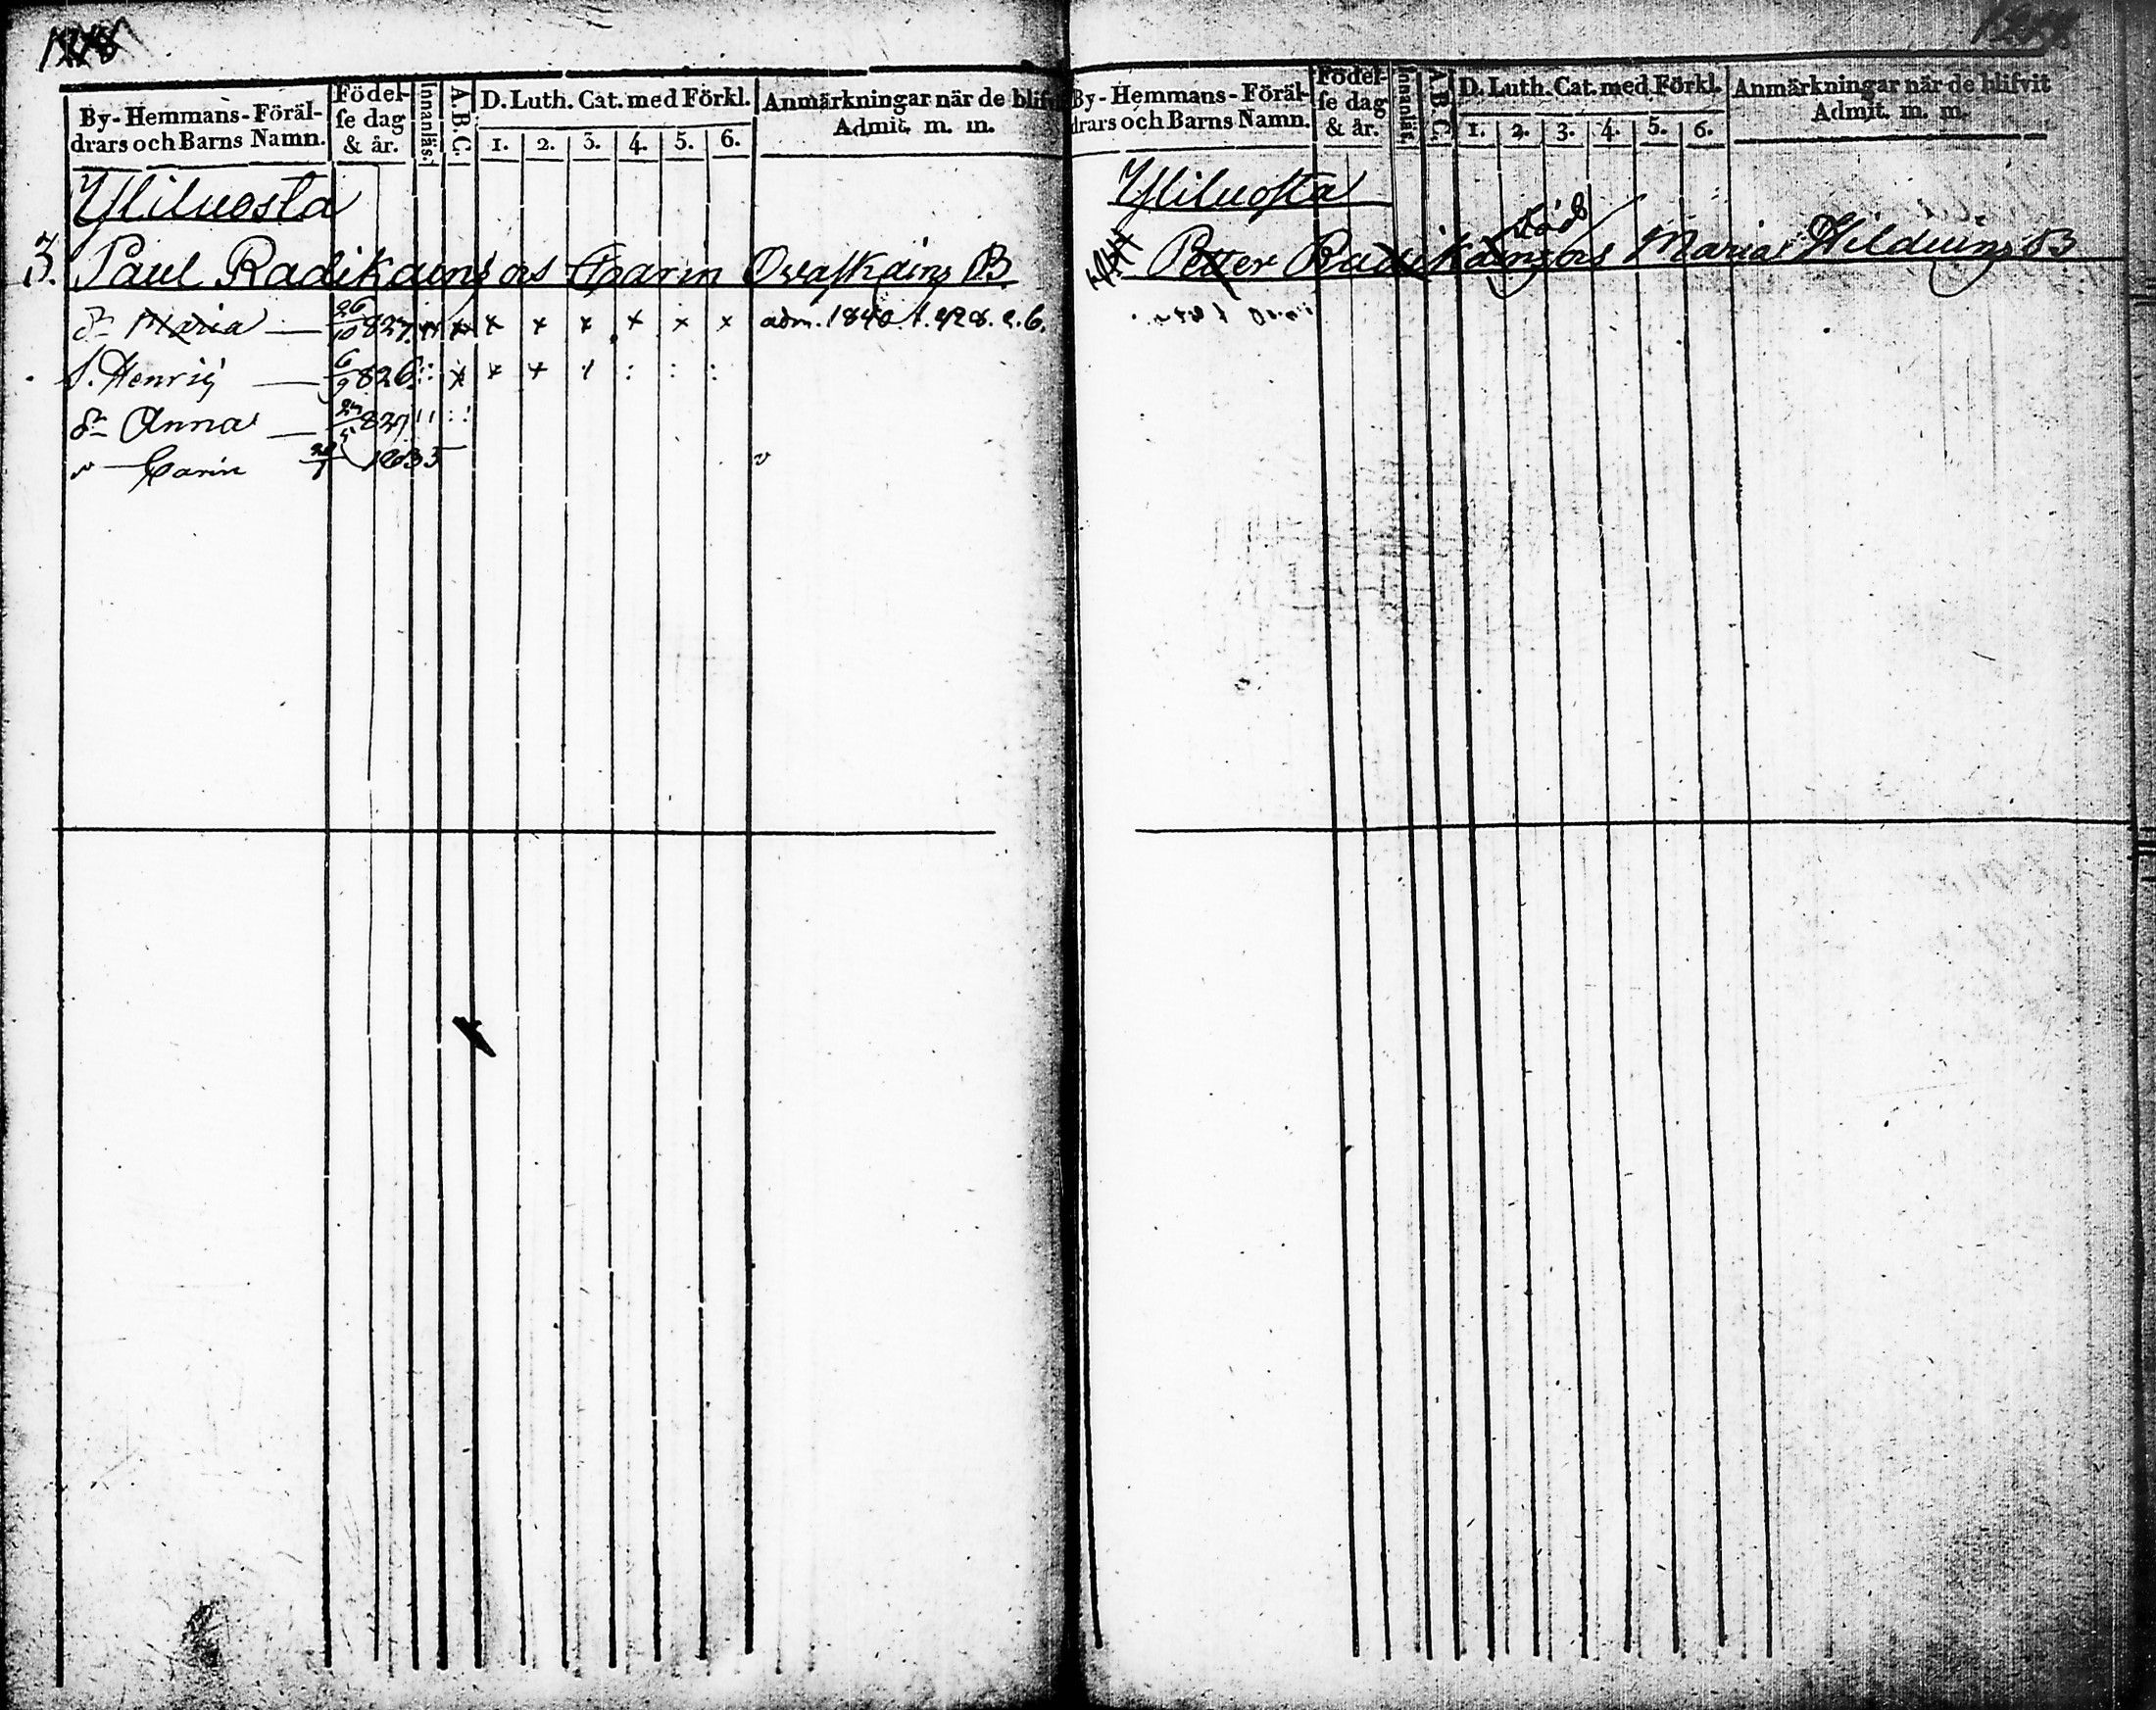 By-Hemmans-Föräl-
drars och Barns Namn.
Födel-
se dag
& år.
Innanläs.
A.B.C.
D. Luth. Cat. med Förkl.
1. 2. 3. 4. 5. 6.
Anmärkningar när de blifvit
Admit. m. m.
Yliluosta
3. Paul Radikains os Carin Ovaskains B
dr Maria — 26/10 827. x x x x x x adm. 1840.
S. Henric — 6/9 826 x x x
dr Anna —
Carin 1833
By-Hemmans-Föräl-
drars och Barns Namn.
Födel-
se dag
& år.
Innanläs.
A.B.C.
D. Luth. Cat. med Förkl.
1. 2. 3. 4. 5. 6.
Anmärkningar när de blifvit
Admit. m. m.
Yliluosta
död
Petter Radikains os Maria B